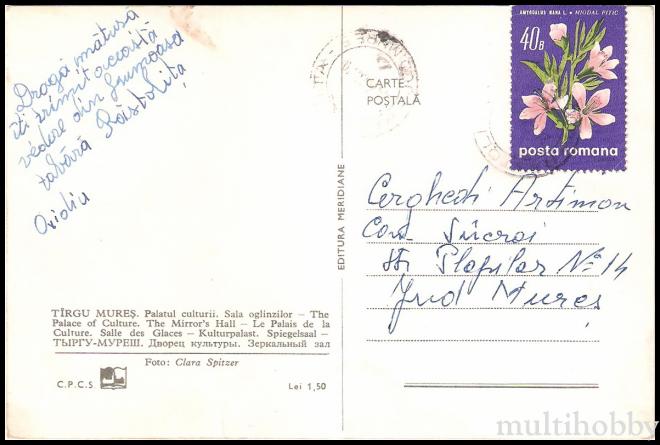 Dragă mătușă
îți trimit această
vedere din frumoasa
tabără Răstolița
Ovidiu
TÎRGU MUREȘ. Palatul culturii. Sala oglinzilor — The
Palace of Culture. The Mirror's Hall — Le Palais de la
Culture. Salle des Glaces — Kulturpalast. Spiegelsaal —
ТЫРГУ-МУРЕШ. Дворец культуры. Зеркальный зал
Foto: Clara Spitzer
C.P.C.S.
Lei 1,50
EDITURA MERIDIANE
CARTE
POȘTALĂ
AMYGDALUS NANA L. • MIGDAL PITIC
40B
posta romana
Artimon
Com.
Str Plopilor No 14
Jud Mureș
multihobby